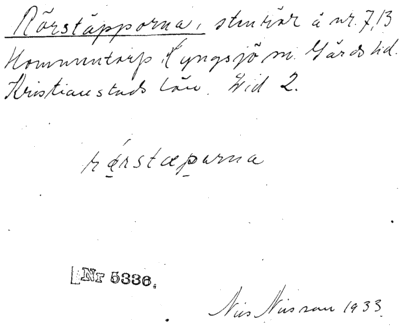 Rörstäpporna, stenrör å nr. 7, 13
Hommentorp Lyngsjö sn. Gärds hd.
Kristianstads län. Vid 2.
rǻrstæparna
Nr 5336.
Nils Nilsson 1933.